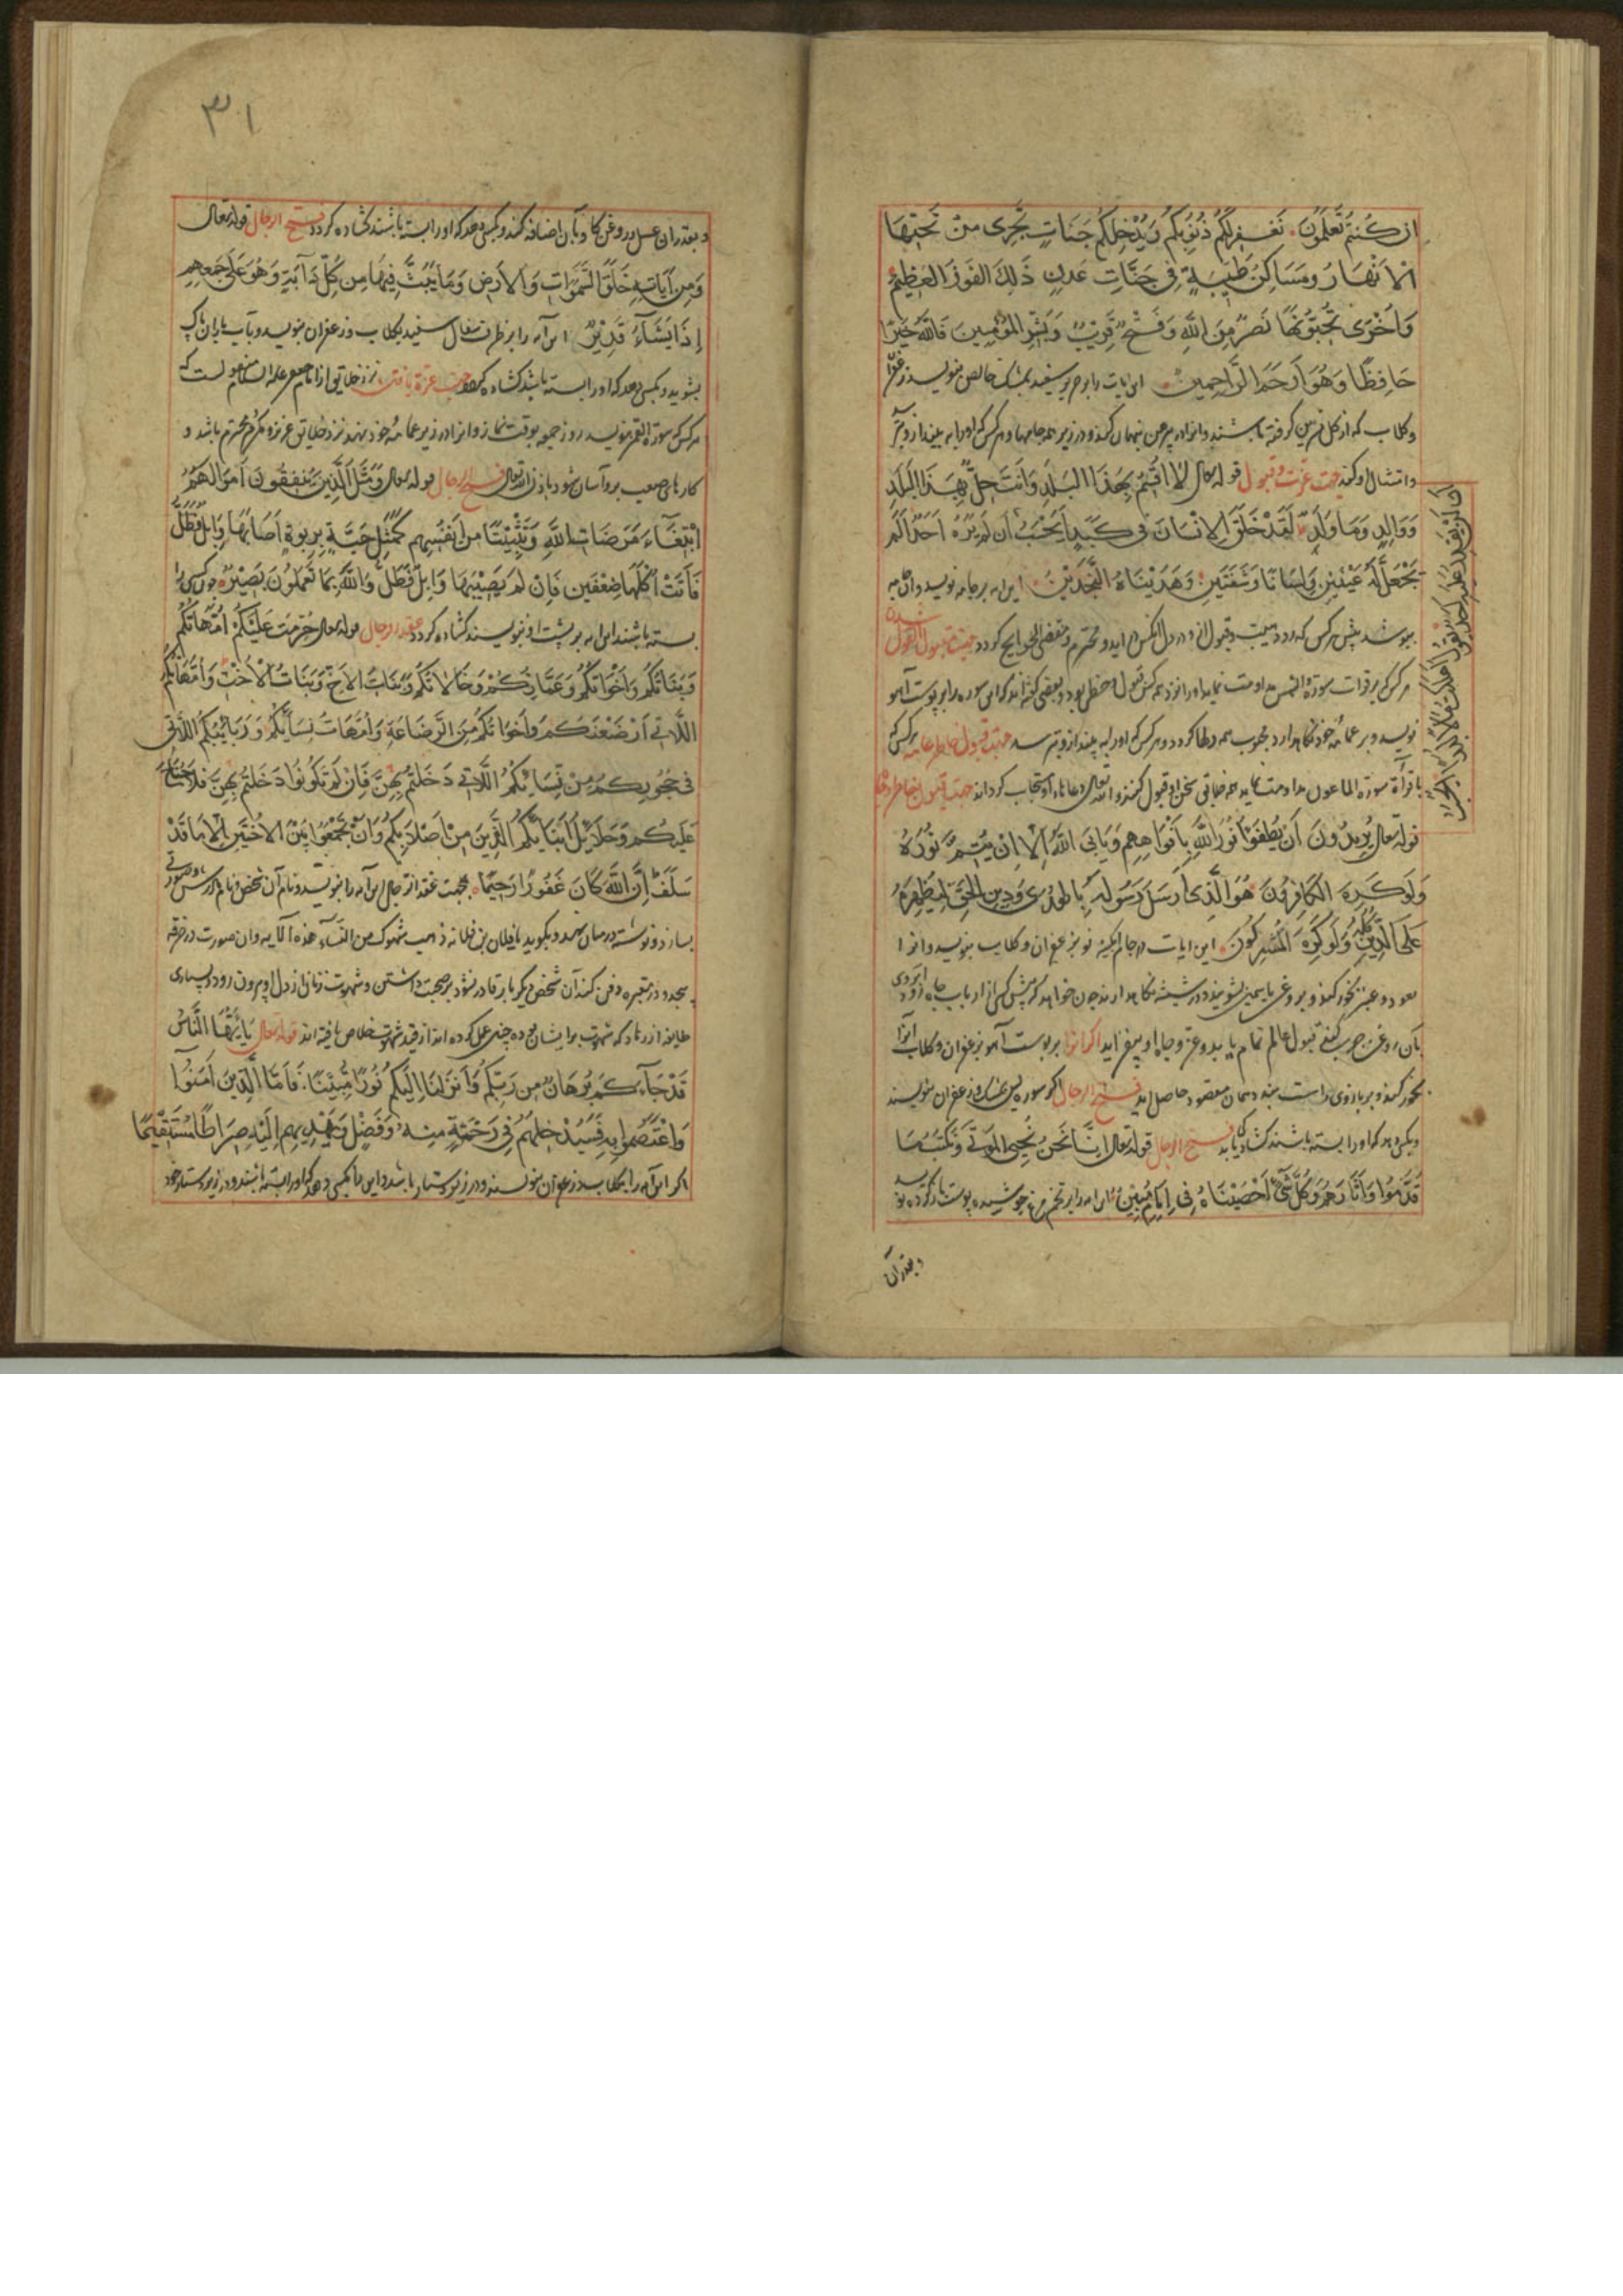 ان كُنتُم تَعلَمُونَ نَغفِرلَكُم ذُنُوبَكُم وَيُدْخِلكُم جَنَاتٍ تَجرِى مِنْ تَحتِهَا
الاَنْهَارُ ومَسَاكِنَ طَيِبَةٍ فِى جَنَّاتِ عَدنٍ ذَلِكَ الفَوزُ العَظِيمُ
وَاُخْرَى تُحِبّوُنَهَا نَصرٌ مِنَ اللهِ وَفَتْحٌ قَرِيبٌ وَبَشِّرِ المُؤمِنِينَ فَاللهُ خَيرٌ
حَافِظًا وَهُوَ اَرحَمُ الرَّاحِمِينَ این ایات را بر حریر سفید بمشک خالص بنویسد و زعفران
وکلاب که از کل نسرین کرفته باشند وانرا در پیرهن پنهان کند و در زیر همه جامها وهر کس که اورا به بیند ازو بترسد
جهت عزت وقبول قوله تعالی لا اُقسِمُ بِهذَا البَلَدِ وَاَنتَ حِلٌّ بِهَذَا البَلَدِ
وَوَالِدٍ وَمَا وَلَدَ لَقَدْ خَلَقْنَا الاِنْسَانَ فِى كَبَدٍ اَيَحْسَبُ اَن لَم يَرَهُ اَحَدٌ اَلَم
نَجْعَل لَهُ عَيْنَيْنِ وَلِسَانًا وَشَفَتَينِ وَهَدَيْنَاهُ النَّجدَيْنِ این ایه بر جامه نویسد وان جامه
بپوشد پیش هر کس که رود هیبت وقبول او در دل انکس در اید ومحترم ومقضی الحوایج کردد
هر کس بر قرات سورة والشمس مداومت نماید اورا نزد همه کس قبول وحظی بود وبعضی کفته اند که این سوره را بر پوست آهو
نویسد وبر عمامه خود نکاهدارد محبوب همه دلها کردد وهر کس که اورا به بیند ازو بترسد هر کس که
باقرأة سورة الماعون مداومت نماید همه خلایق سخن او قبول کنند والله تعالی دعاهاء او مستجاب کرداند
قوله تعالی يُرِيدُونَ اَن يُطفِؤُا نُورَ اللهِ بِاَفْوَاهِهِم وَيَابَى اللهُ اِلاَ اَنْ يُتِمَّ نُورَهُ
وَلَوكَرِهَ الكَافِرُونَ هُوَ الَّذِى اَرسَلَ رَسُولَهُ بِالهُدَى وَدِينِ الحَقِ لِيُظهِرَهُ
عَلَى الدِّينِ كُلِّهِ وَلَوكَرِهَ المُشرِكُونَ این ایات در جام ابکینه نو بزعفران وکلاب بنویسد وانرا
بعود وعنبر بخور کند وبروغن یاسمین بشویند ودر شیشه نکاهدارند چون خواهد که پیش کسی از ارباب جاه رود
بان روغن چرب کند قبول عالم تمام یابد وعز وجاه او بیفزاید اکر انرا بر پوست آهو بزعفران وکلاب
بخور کند وبر بازوی راست بندد همان مقصود حاصل اید فتح الرجال اکر سوره یس بمشک وزعفران بنویسند
وبکسی دهد که اورا بسته باشند کشاد یابد فتح الرجال قوله تعالی اِنَّا نَحنُ نُحيِى المَوتَى وَنَكتُبُ مَا
قَدَّمُوا وَآثَارَهُم وَكُلَّ شَیْءٍ اَحْصَيْنَاهُ فِى اِمَامٍ مُبِينٍ این ایه را بر تخم مرغ جوشیده پوست باز کرده نویسد
وبقدر آن
۳۱
وبقدر ان عسل وروغن کاو بان اضافه کند وبکسی دهد که اورا بسته باشند کشاده کردد فتح الرجال قوله تعالی
وَمِن آيَاتِهِ خَلقُ السَّمَوَاتِ وَالاَرضِ وَمَا بَثَّ فِيهِمَا مِن كُلِّ دَآبَةٍ وَهُوَ عَلَى جَمعِهِم
اِذَا يَشَاءُ قَدِيْرٌ این آیه را بر ظرف سفال سفید بکلاب وزعفران بنویسد وبآب باران پاک
بشوید وبکسی دهد که اورا بسته باشند کشاده کردد جهت عزة یافتن نزد خلایق از امام جعفر علیه السلام منقولست که
هر کس سورة القمر بنویسد روز جمعه بوقت نماز وانرا در زیر عمامه خود نهد نزد خلایق عزیز ومکرم ومحترم باشد و
کارهای صعب برو آسان شود باذن الله تعالی فتح الرجال قوله تعالی وَمَثَلُ الَّذِينَ يُنفِقُونَ اَموَالَهُمُ
ابْتِغَآءَ مَرضَاتِ اللهِ وَتَثْبِيْتًا مِن اَنفُسِهِم كَمَثَلِ جَنَّةٍ بِرَبوَةٍ اَصَابَهَا وَابِلٌ فَطَلٌّ
فَآتَتْ اُكُلَهَا ضِعْفَينِ فَاِنْ لَم يُصِبْهَا وَابِلٌ فَطَلٌّ وَاللهُ بِمَا تَعْمَلُونَ بَصِيْرٌ چون کسی را
بسته باشند این ایه بر پشت او بنویسند کشاده کردد عقد الرجال قوله تعالی حُرِّمَت عَلَيْكُم اُمَّهَاتُكُم
وَبَنَاتُكُم وَاَخَوَاتُكُم وَعَمَّاتُكُمْ وَخَالَاتُكُم وَبَنَاتُ الاَخِ وَبَنَاتُ الاُخْتِ وَاُمَّهَاتُكُمُ
اللَّاتِى اَرْضَعْنَكُم وَاَخَوَاتُكُم مِنَ الرَّضَاعَةِ وَاُمَّهَاتُ نِسَائِكُم وَرَبَائِبُكُمُ اللَّاتِى
فِى حُجُورِكُم مِنْ نِسَائِكُمُ اللَّاتِى دَخَلتُم بِهِنَّ فَاِنْ لَم تَكُونُوا دَخَلتُم بِهِنَّ فَلَا جُنَاحَ
عَلَيكُم وَحَلَائِلُ اَبنَائِكُمُ الَّذِينَ مِنْ اَصْلَابِكُم وَاَنْ تَجْمَعُوا بَيْنَ الاُخْتَينِ اِلاَ مَا قَدْ
سَلَفَ اِنَّ اللهَ كَانَ غَفُورًا رَحِيمًا بجهت عقد الرجال این آیه را بنویسد ونام آن شخص ونام مادرش وصورتی
بسازد ونوشته در میان نهد وبکوید یا فلان بن فلانه ذهبت شهوتک من النساء هذه الآیه وان صورت در خرقه
پیچد ودر مقبره دفن کند آن شخص دیکر باره قادر نشود بر صحبت داشتن وشهوت زنان از دل او بیرون رود وبسیاری
طایفه از زهاد که شهوت بر ایشان بوده چنین عمل کرده اند از قید شهوت خلاص یافته اند قوله تعالی يَااَيُّهَا النَّاسُ
قَدْ جَآءَكُم بُرهَانٌ مِن رَبِّكُم وَاَنزَلنَا اِلَيكُم نُورًا مُبِيْنًا فَاَمَّا الَّذِينَ آمَنُوا
وَاعْتَصَمُوا بِهِ فَسَيُدْخِلُهُم فِى رَحْمَةٍ مِنهُ وَفَضْلٍ وَيَهْدِيهِم اِلَيْهِ صِرَاطًا مُسْتَقِيْمًا
اکر این آیه را بکلاب وزعفران بنویسند ودر زیر دستار باشد واین را بکسی دهد که اورا بسته باشند ودر زیر دستار خود